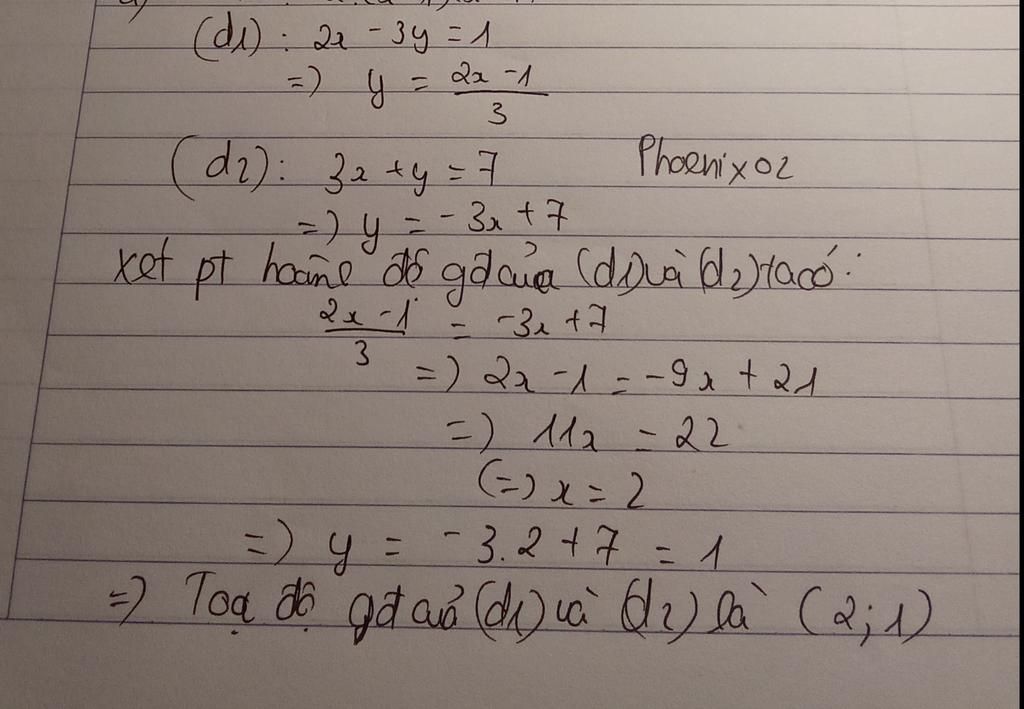 (d1): 2x - 3y = 1
=) y = \frac{2x - 1}{3}
(d2): 3x + y = 7
Phoenix02
=) y = -3x + 7
xét pt hoành độ gđ của (d1) và (d2) ta có:
\frac{2x - 1}{3} = -3x + 7
=) 2x - 1 = -9x + 21
=) 11x = 22
(=) x = 2
=) y = -3.2 + 7 = 1
=) Toạ độ gđ của (d1) và (d2) là (2; 1)